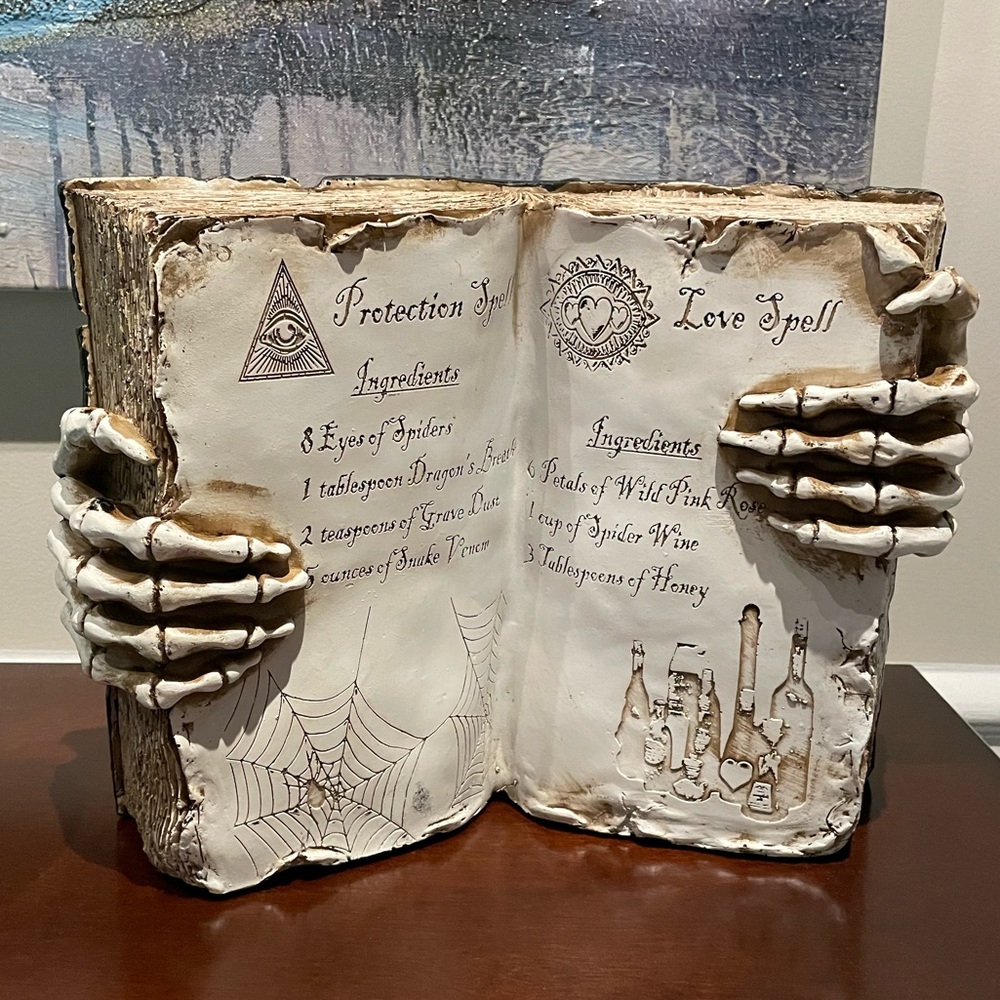 Protection Spell
Ingredients
8 Eyes of Spiders
1 tablespoon Dragon's Breath
2 teaspoons of Grave Dust
5 ounces of Snake Venom
Love Spell
Ingredients
6 Petals of Wild Pink Rose
1 cup of Spider Wine
3 Tablespoons of Honey